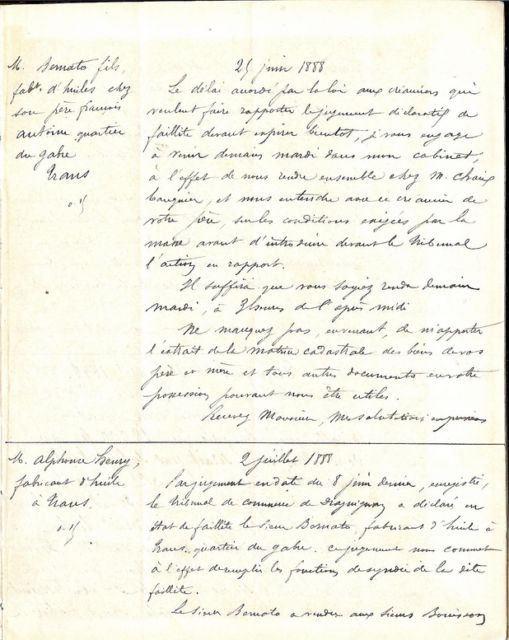 M. Bomato fils,
fabt. d'huiles chez
son père françois
antoine quartier
du gabre
Trans
25 juin 1888
Le délai accordé par la loi aux créanciers qui
veulent faire rapporter le jugement déclaratif de
faillite devant expirer bientôt, je vous engage
à venir demain mardi dans mon cabinet,
à l'effet de nous rendre ensemble chez M. Chaix
banquier, et nous entendre avec ce créancier de
votre père, sur les conditions exigées par la
avant d'introduire devant le tribunal
l'action en rapport.
Il suffira que vous soyiez rendu demain
mardi, à 3 heures de l'après midi
Ne manquez pas, en venant, de m'apporter
l'extrait de la matrice cadastrale des biens de vos
père et mère et tous autres documents en votre
possession pouvant nous être utiles.
Recevez Monsieur, mes salutations empressées
M. Alphonse Henry,
fabricant d'huile
à Trans
2 juillet 1888
Par jugement en date du 8 juin dernier, enregistré,
le tribunal de commerce de Draguignan a déclaré en
état de faillite le sieur Bomato, fabricant d'huile à
Trans, quartier du gabre. ce jugement nous commet
à l'effet de remplir les fonctions de syndic de la dite
faillite.
Le sieur Bomato a vendu aux sieurs Bouisson